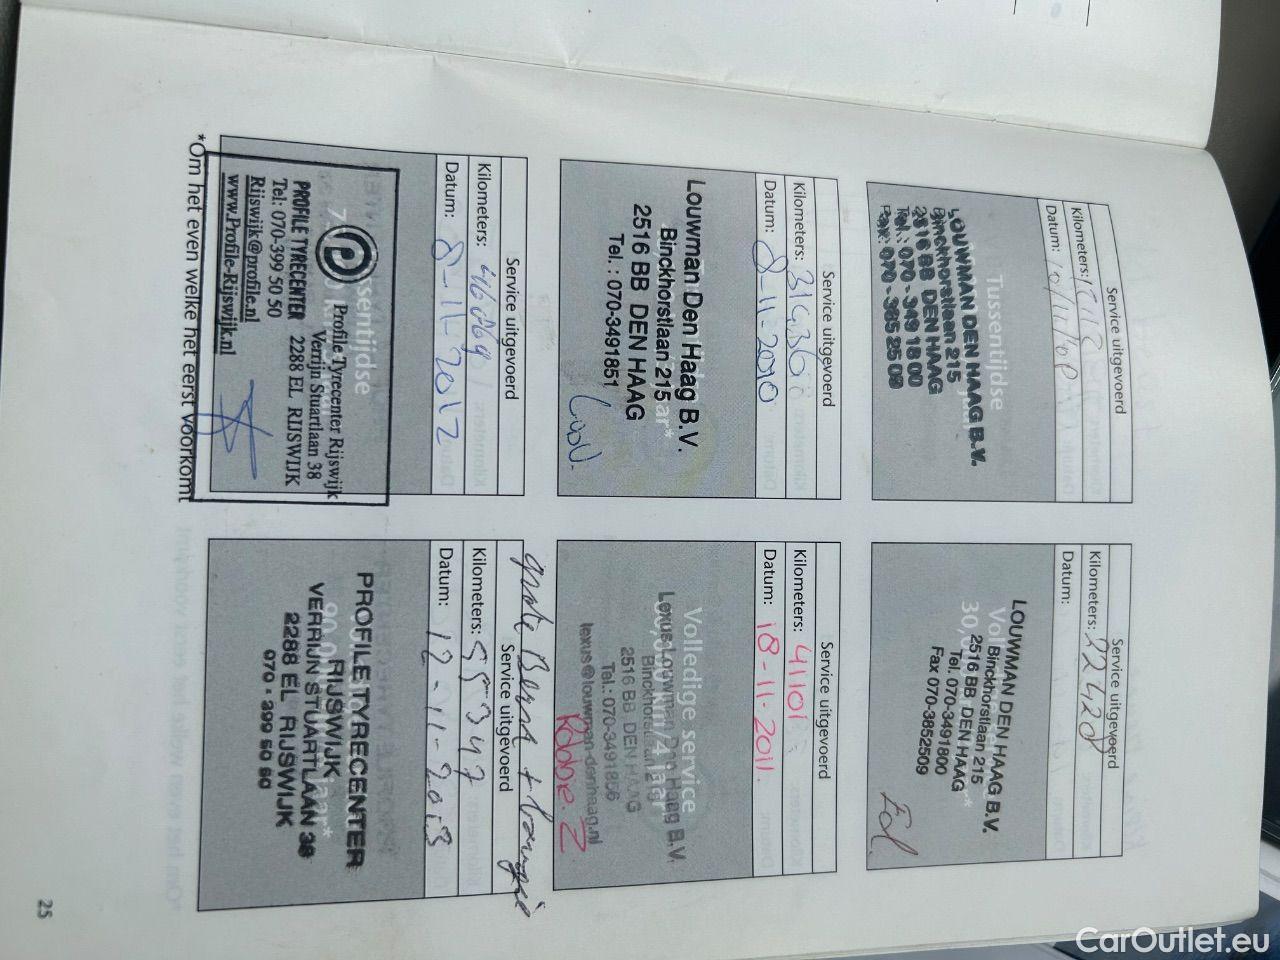 Service uitgevoerd
Kilometers:
Datum:
Tussentijdse
LOUWMAN DEN HAAG B.V.
Binckhorstlaan 215
2516 BB DEN HAAG
Tel.: 070 - 349 18 00
Fax: 070 - 385 25 09
Service uitgevoerd
Kilometers: 22420
Datum:
LOUWMAN DEN HAAG B.V.
Binckhorstlaan 215
2516 BB DEN HAAG
Tel. 070-3491800
Fax 070-3852509
Service uitgevoerd
Kilometers:
Datum: 8-11-2010
Louwman Den Haag B.V.
Binckhorstlaan 215
2516 BB DEN HAAG
Tel. : 070-3491851
Service uitgevoerd
Kilometers: 41101
Datum: 18-11-2011.
Volledige service
Lexus Louwman Den Haag B.V.
2516 BB DEN HAAG
Tel.: 070-3491856
lexus@louwman-denhaag.nl
Service uitgevoerd
Kilometers: 46069
Datum: 8-11-2012
Profile Tyrecenter Rijswijk
Verrijn Stuartlaan 38
PROFILE TYRECENTER 2288 EL RIJSWIJK
Tel: 070-399 50 50
Rijswijk@profile.nl
www.Profile-Rijswijk.nl
grote Beurt +
Service uitgevoerd
Kilometers: 55347
Datum: 12-11-2013
PROFILE TYRECENTER
RIJSWIJK
VERRIJN STUARTLAAN 38
2288 EL RIJSWIJK
*Om het even welke het eerst voorkomt
25
CarOutlet.eu